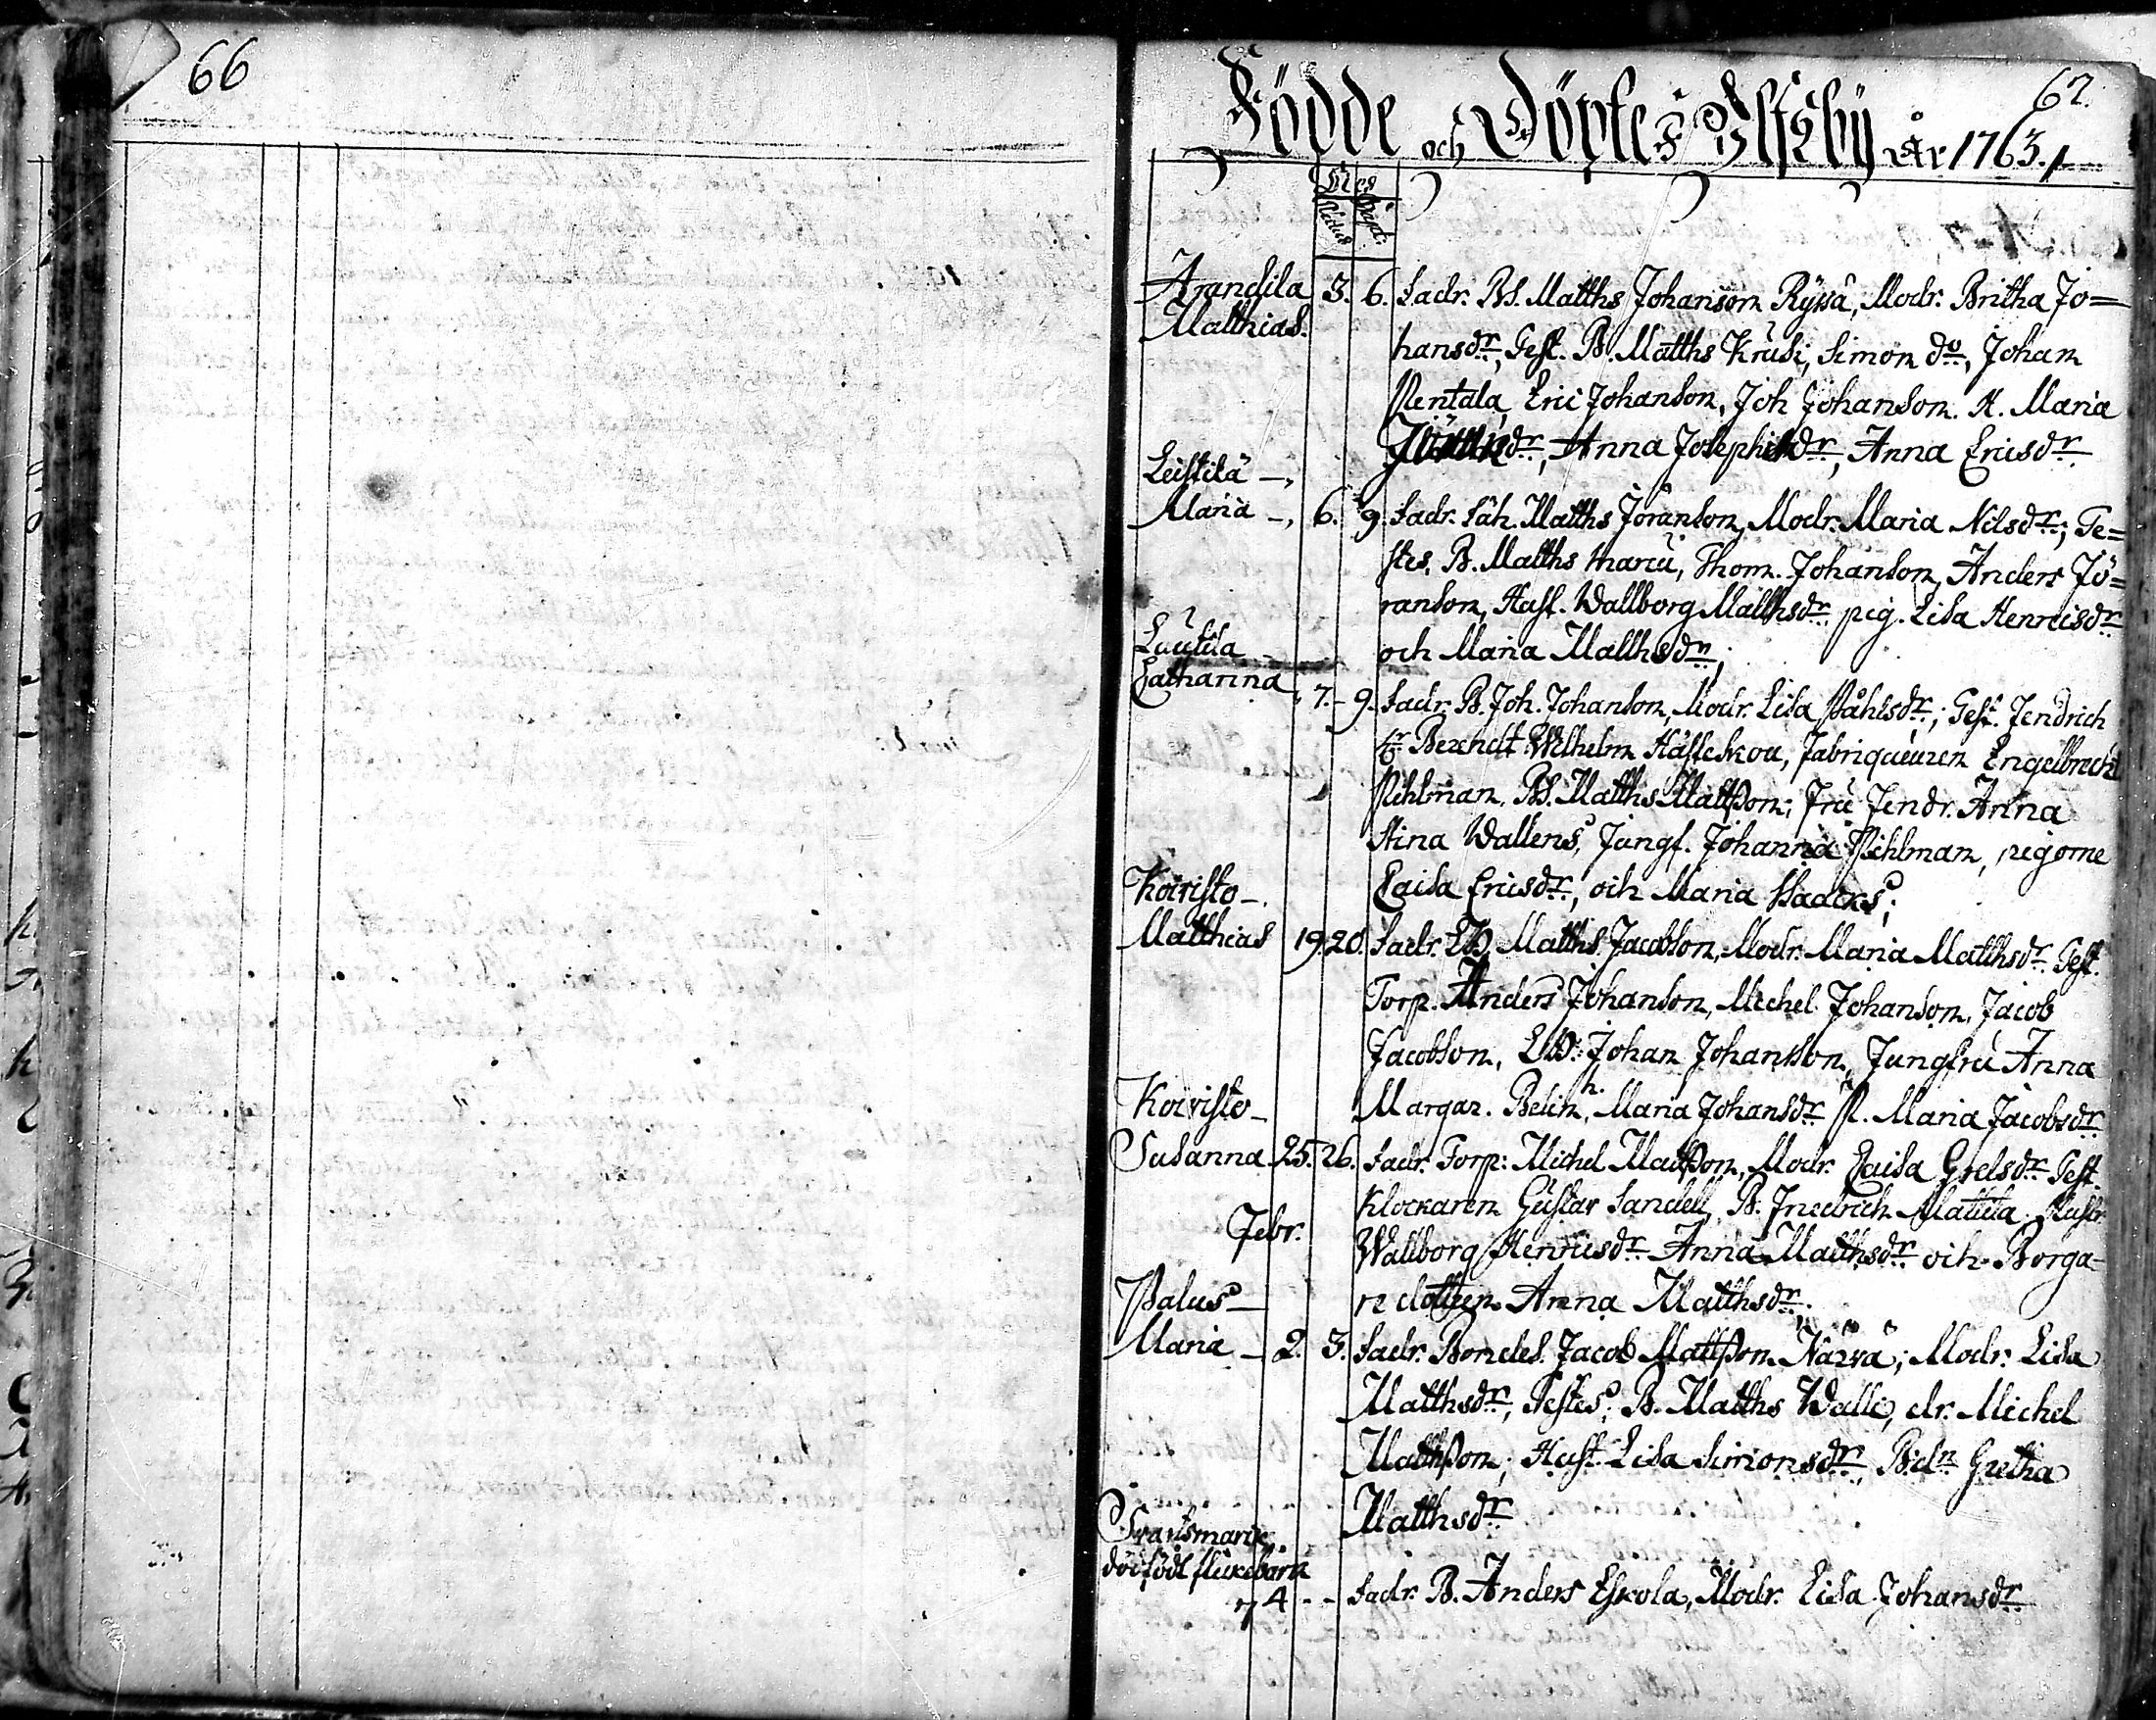 66
67.
Födde och Döpte i Ulfsby År 1763.
Dies
Natus Bapt:
Arandila 3. 6. Fadr. Bd. Matths Johanson Ryssä, Modr. Britha Jo=
Matthias.
hansdr, Test. B. Matths Krusi, Simon do, Johan
Pentala, Eric Johanson, Joh Johanson. H. Maria
dr, Anna Josephsdr, Anna Ericsdr
Leistilä
Maria 6. 9. Fadr. Matths Jöranson, Modr. Maria Nilsdr; Te=
stes, B. Matths Harju, Thom. Johanson, Anders Jö=
ranson, Hust. Wallborg Matthsdr pig. Lisa Henricsdr
och Maria Matthsdr;
Lautila
Catharina 7. 9. Fadr. B. Joh. Johanson, Modr. Lisa Påhlsdr; Test. Fendrich
hr Berendt Wilhelm Hästeskou, Fabriqueuren Engelbrecht
Pihlman, Bd. Matths Mattsson; Fru Fendr. Anna
Stina Wallens, Jungf. Johanna Pihlman, pigorne
Caisa Ericsdr, och Maria
Koivisto
Matthias 19. 20. Fadr. Matths Jacobson, Modr. Maria Matthsdr Test.
Torp. Anders Johanson, Michel Johanson, Jacob
Jacobson, Johan Johansson, Jungfru Anna
Margar. Maria Johansdr P. Maria Jacobsdr
Koivisto
Susanna 25. 26. Fadr. Torp: Michel Mattsson, Modr. Caisa Grelsdr Test.
Klockaren Gustav Sandell, B. Friedrich Mattila Hustr
Febr.
Wallborg Henricsdr Anna Matthsdr och Borga-
re dottren Anna Matthsdr.
Palus
Maria 2. 3. Fadr. Bondes. Jacob Mattsson Närvä; Modr. Lisa
Matthsdr, Testes; B. Matths Walli, dr. Michel
Mattsson; Hust. Lisa Simonsdr, Bdr Gretha
Matthsdr
Svartsmark
dödfödt flickebarn
4 - - Fadr. B. Anders Eskola, Modr. Lisa Johansdr